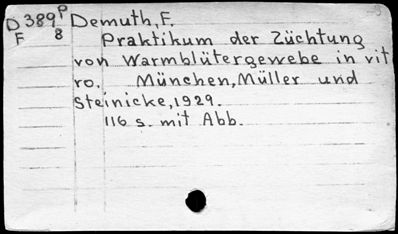 D 389 P Demuth, F.
F 8 Praktikum der Züchtung
von Warmblütergewebe in vit
ro. München, Müller und
Steinicke, 1929.
116 s. mit Abb.